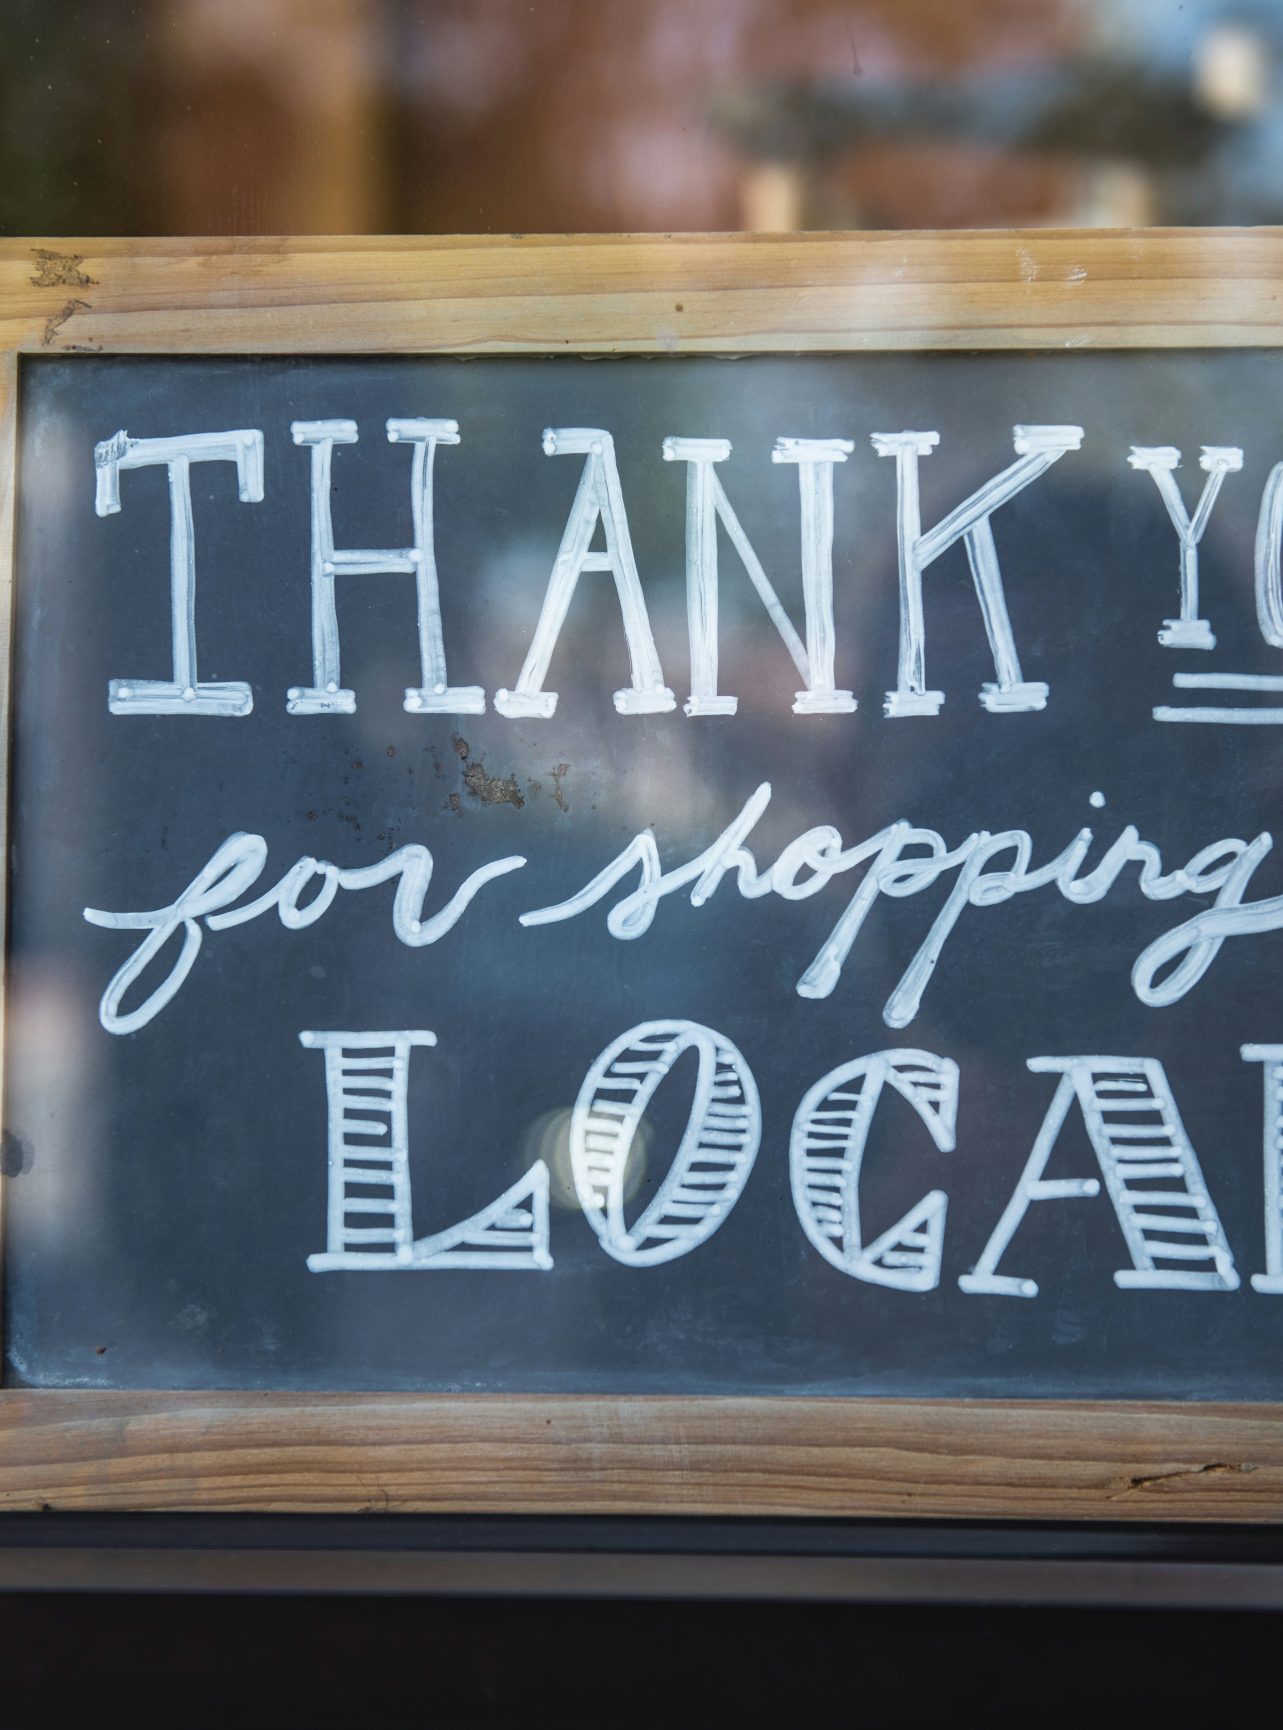 THANK YO
for shopping
LOCAL